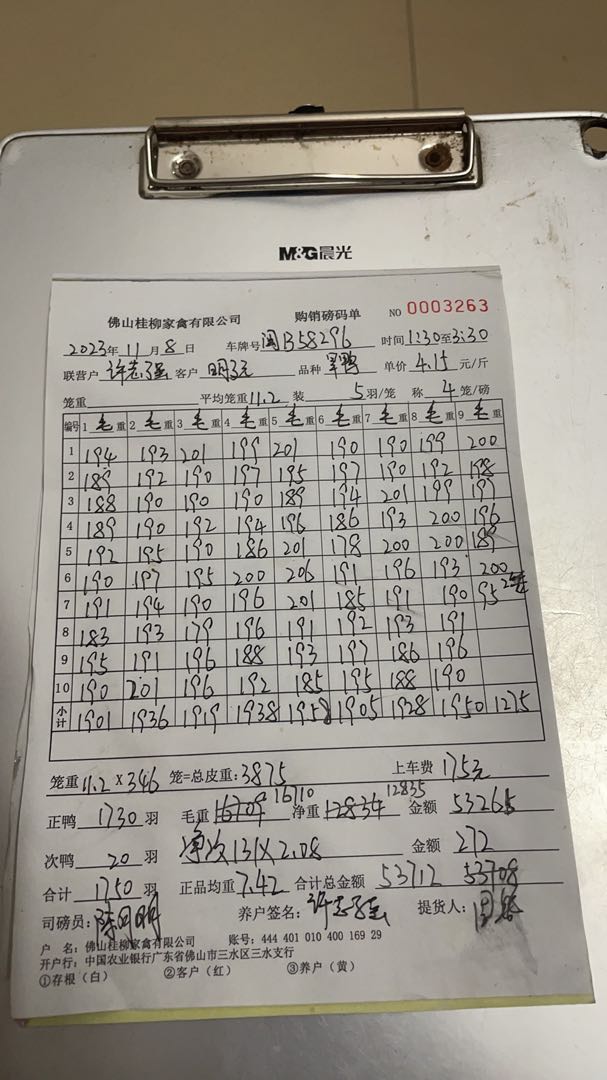 M&G晨光
佛山桂柳家禽有限公司 购销磅码单 NO 0003263
2023年11月8日 车牌号 闽B58296 时间1:30至3:30
联营户 许志强 客户 明元 品种 旱鸭 单价 4.15 元/斤
笼重 平均笼重11.2 装 5 羽/笼 称 4 笼/磅
编号 1毛重 2毛重 3毛重 4毛重 5毛重 6毛重 7毛重 8毛重 9毛重
1 194 193 201 199 201 190 190 199 200
2 189 192 190 197 195 197 190 192 198
3 188 190 190 190 189 194 201 199 199
4 189 190 192 194 196 186 193 200 196
5 192 195 190 186 201 178 200 200 189
6 190 197 195 200 206 191 196 193 200
7 191 194 190 196 201 185 191 190 95
8 183 193 179 196 191 192 193 191
9 195 191 196 188 193 197 186 196
10 190 201 196 192 185 195 188 190
小计 1901 1936 1919 1938 1958 1905 1928 1950 1275
笼重 11.2×346 笼=总皮重:3875 上车费 175元
正鸭 1730 羽 毛重 16709 16710 净重 12834 12835 金额 53265
次鸭 20 羽 净次131×2.08 金额 272
合计 1750 羽 正品均重 7.42 合计总金额 53712 53708
司磅员: 养户签名: 许志强 提货人:
户 名: 佛山桂柳家禽有限公司 账号: 444 401 010 400 169 29
开户行: 中国农业银行广东省佛山市三水区三水支行
①存根(白) ②客户(红) ③养户(黄)